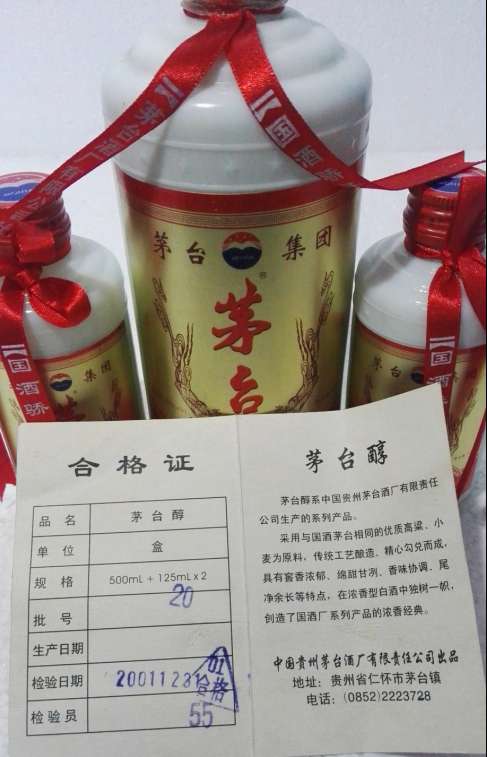 茅台酒厂
K国酒
茅台 集团
®
茅台
集团
K国酒骄
茅台 集
K国酒
合格证
品名 茅台醇
单位 盒
规格 500mL + 125mL x 2
批号 20
生产日期
检验日期 20011231
合格
检验员 55
茅台醇
茅台醇系中国贵州茅台酒厂有限责任
公司生产的系列产品。
采用与国酒茅台相同的优质高粱、小
麦为原料，传统工艺酿造、精心勾兑而成，
具有窖香浓郁、绵甜甘冽、香味协调、尾
净余长等特点，在浓香型白酒中独树一帜，
创造了国酒厂系列产品的浓香经典。
中国贵州茅台酒厂有限责任公司出品
地址：贵州省仁怀市茅台镇
电话：(0852)2223728